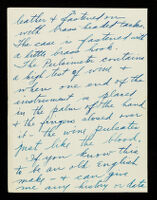 leather & fastened on
with brass headed tacks.
The case is fastened with
a little brass hook.
The Perlimeter contains
a high test of wine &
when one end of the
instrument is placed
in the palm of the hand
& the fingers closed over
it - the wine pulsates
just like the blood.
If you know this
to be an old English
make & can give
me any history or date